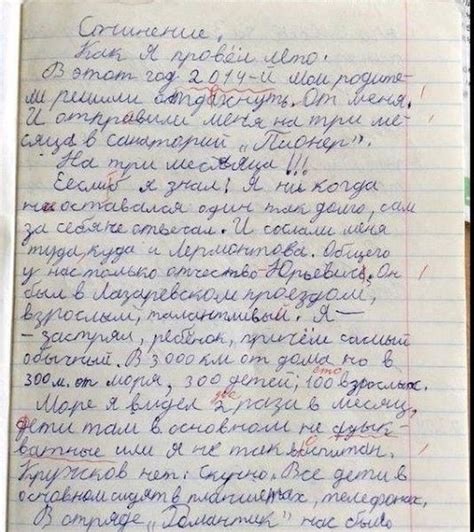 Сочинение.
Как Я провёл лето.
В этот год 2014-й мои родите-
ли решили отдахнуть. От меня.
И отправили меня на три ме-
сяца в санаторий „Пионер".
На три месяца!!!
Еслиб я знал! Я ни когда
не оставался один так долго, сам
за себя не отвечал. И сослали меня
туда, куда и Лермонтова. Общего
у нас только отчество - Юрьевич. Он
был в Лазаревском проездом,
взрослым, талантливый. Я —
— застрял, ребёнок, причём самый
обычный. В 3000 км от дома но в
300 м. от моря, 300 детей, 100 взрослых.
сто
Море я видел 2 раза в месяц,
два
дети там в основном не
ватные или я не так воспитан.
Кружков нет. Скучно. Все дети в
основном сидят в планшетах, телефонах.
В отряде „Романтик" нас было